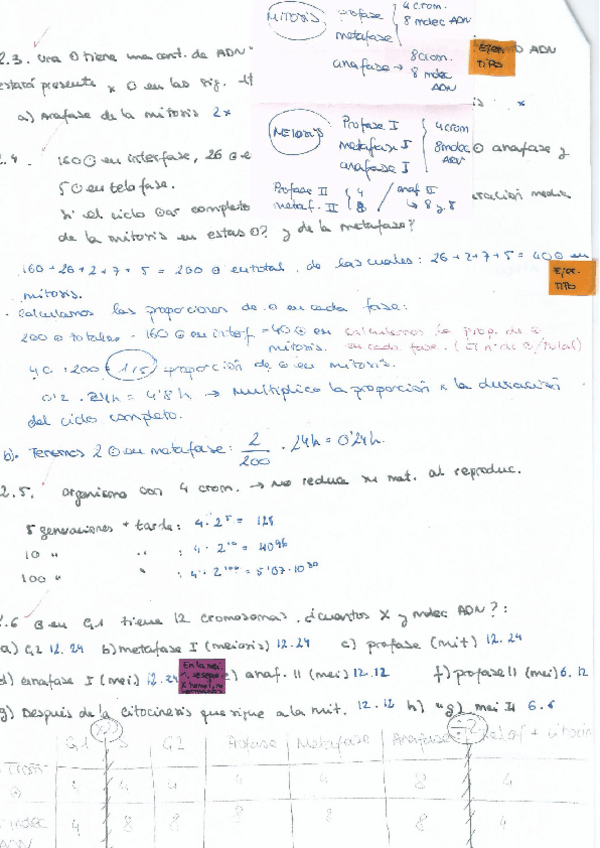 MITOSIS profase 4 crom.
metafase 8 molec ADN
anafase → 8 crom. 8 molec ADN
EJER. TIPO
MEIOSIS Profase I 4 crom
metafase I 8 molec ADN
anafase I
Profase II 4 / anaf II
metaf. II 8 ↳ 8 y 8
2.3. Una ⊙ tiene una cant. de ADN ADN
estará presente x ⊙ en las sig.
a) Anafase de la mitosis 2x
2.4. 160 ⊙ en interfase, 26 ⊙ e ⊙ anafase y
5 ⊙ en telofase.
Si el ciclo ⊙ar completo uración media
de la mitosis en estas ⊙? y de la metafase?
160 + 26 + 2 + 7 + 5 = 200 ⊙ en total, de las cuales: 26 + 2 + 7 + 5 = 40 ⊙ en
EJER. TIPO
mitosis.
· Calculamos las proporciones de ⊙ en cada fase:
200 ⊙ totales - 160 ⊙ en interf = 40 ⊙ en mitosis. Calculamos la prop. de ⊙ en cada fase. ( nº de ⊙/total)
40 : 200 = 1/5 proporción de ⊙ en mitosis.
0'2 · 24h = 4'8 h → Multiplico la proporción x la duración
del ciclo completo.
b). Tenemos 2 ⊙ en metafase: 2/200 · 24h = 0'24h.
2.5. Organismo con 4 crom. → No reduce su mat. al reproduc.
5 generaciones + tarde: 4 · 2⁵ = 128
10 " " : 4 · 2¹⁰ = 4096
100 " " : 4 · 2¹⁰⁰ = 5'07 · 10³⁰
2.6 ⊙ en G1 tiene 12 cromosomas. ¿Cuántos X y molec ADN?:
a) G2 12.24 b) metafase I (meiosis) 12.24 c) profase (mit) 12.24
d) anafase I (mei) 12.24 e) anaf. II (mei) 12.12 f) profase II (mei) 6.12
En la mei. I, se separan
g) Después de la citocinesis que sigue a la mit. 12.12 h) "g) mei II 6.6
G1 S G2 Profase Metafase Anafase Telof + citocin
crom ⊙ 4 4 4 4 4 8 4
molec ADN 4 8 8 8 8 8 4